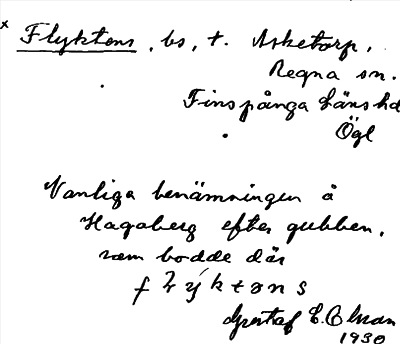 x Flyktens, bs, t. Asketorp,
Regna sn.
Finspånga länshd
Ögl
Vanliga benämningen å
Hagaberg efter gubben,
som bodde där
Gustaf
1930